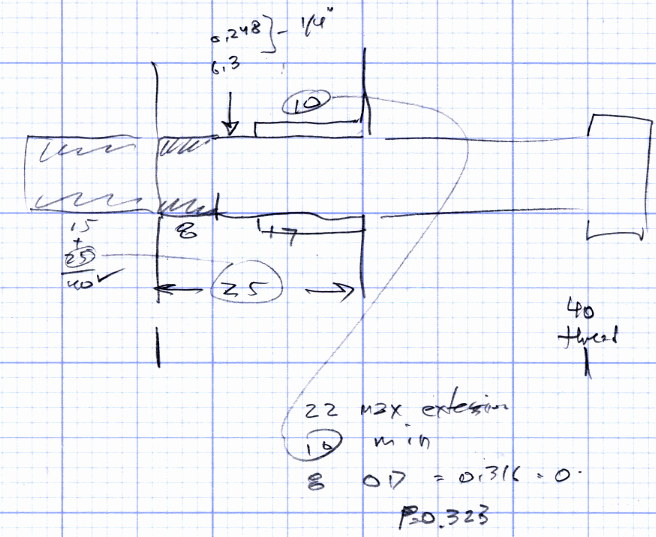 0.248 } - 1/4"
6.3
10
15
+
25
40 ✓
8
17
25
40
thread
22 max extension
10 min
8 OD = 0.316 - 0.
P=0.323